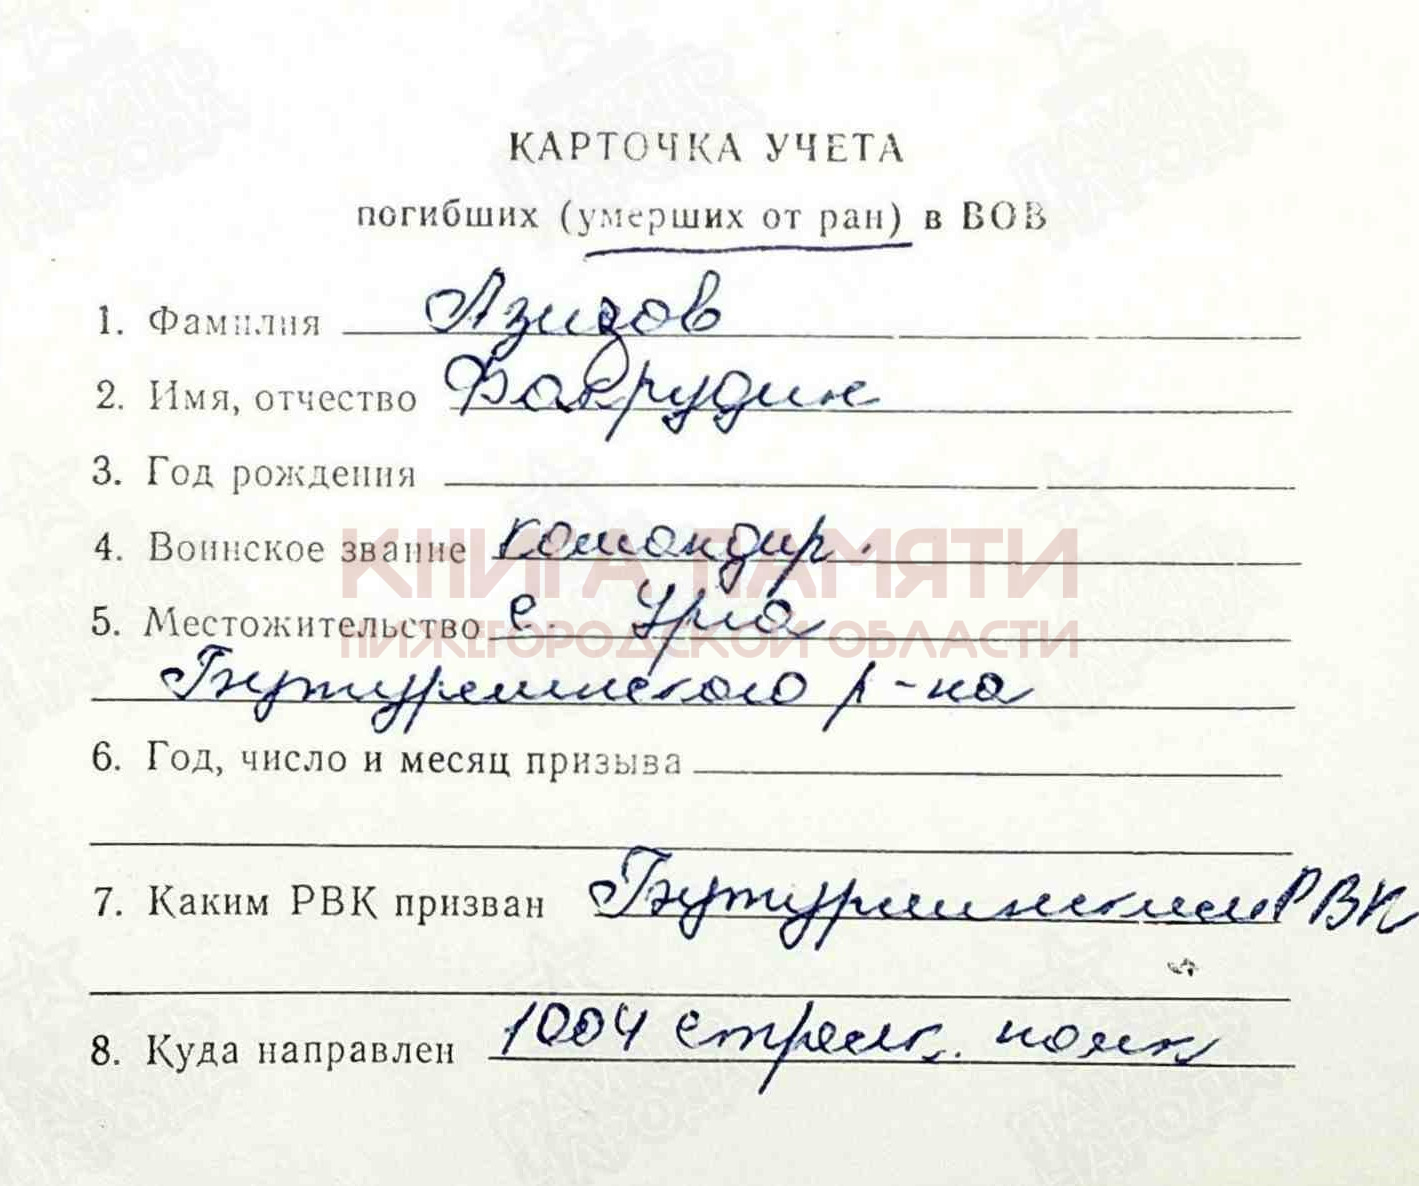 КАРТОЧКА УЧЕТА
погибших (умерших от ран) в ВОВ
1. Фамилия Азизов
2. Имя, отчество Фахрудин
3. Год рождения
4. Воинское звание командир.
КНИГА ПАМЯТИ
5. Местожительство с. Урга
НИЖЕГОРОДСКОЙ ОБЛАСТИ
Бутурлинского р-на
6. Год, число и месяц призыва
7. Каким РВК призван Бутурлинским РВК
8. Куда направлен 1004 стрелк. полк